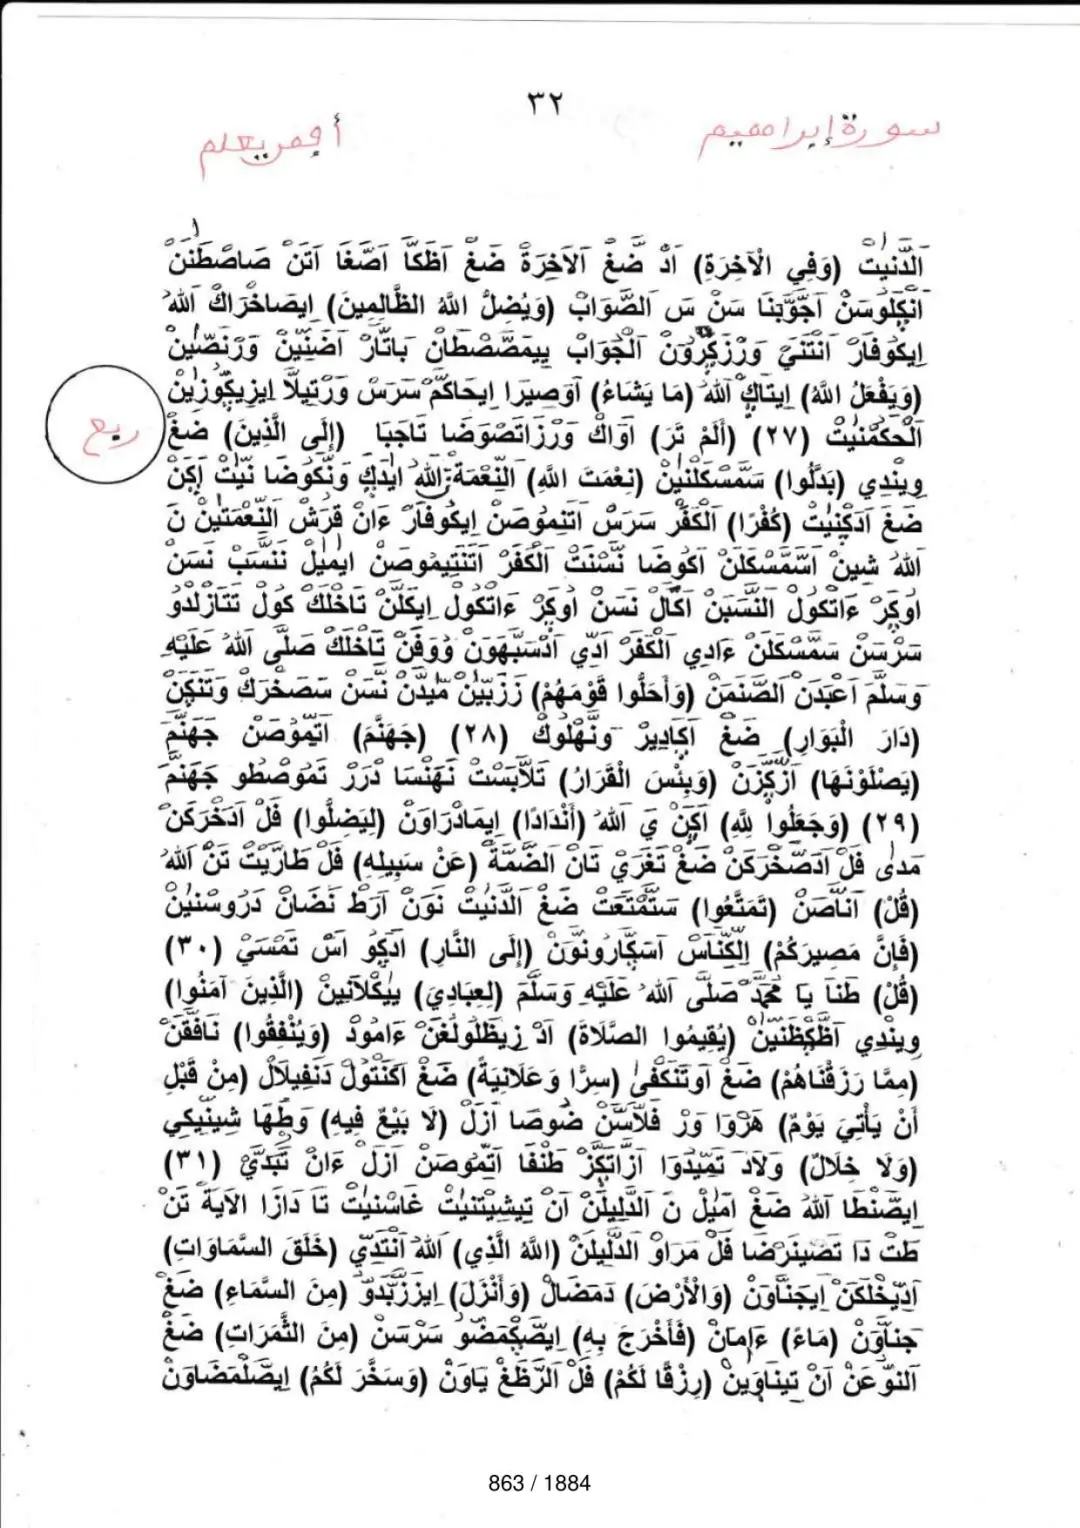 ٣٢
سورة إبراهيم
أفمن يعلم
اَلدُّنْيِتْ (وَفِي الْآخِرَةِ) اَدْ ضَغْ اَلَاخِرَةْ ضَغْ اَظَكَّا اَصَّغَا اَتَنْ صَاصْطَنَنْ
اَنْكِلُوسَنْ اَجَوَّبْنَا سَنْ سَ اَلصَّوَابْ (وَيُضِلُّ اللهُ الظَّالِمِينَ) اِيصَاخْرَاكْ اَللهُ
اِيكُوفَارْ اَنْتَنَيْ اَلْجَوَابْ بَاتَّارْ اَضَنِينْ
(وَيَفْعَلُ اللهُ) اِيتَاكْ اَللهُ (مَا يَشَاءُ) اَوَصِيرَا اِيحَاكَمْ سَرَسْ وَرْتِيلَّا
ربع
اَلْحَكْمَنِيتْ (٢٧) (أَلَمْ تَرَ) اَوَاكْ تَاجَبَا (إِلَى الَّذِينَ) ضَغْ
وِينْدِي (بَدَّلُوا) سَمَّسْكَلْنَيْنْ (نِعْمَتَ اللهِ) اَلنِّعْمَةْ اَللهُ نِّيتْ اِكَنْ
ضَغْ اَدَكْنِيتْ (كُفْرًا) اَلْكُفْرْ سَرَسْ اَتِنْمُوصَنْ اِيكُوفَارْ ءَانْ قُرَشْ اَلنِّعْمَتَيْنْ نَ
اَللهُ شِينْ اَسَّمَّسْكَلَنْ اَكُوضَا نَسْنَتْ اَلْكُفْرْ نَسَنْ
اَوَكِرْ ءَاتْكُولْ اَلنَّسَبَنْ اَكَّالْ نَسَنْ اَوَكِرْ ءَاتْكُولْ اِيكَلَّنْ تَاخْلَكْ كَوْلْ
سَرْسَنْ سَمَّسْكَلَنْ ءَادِي اَلْكُفْرْ اَدِّي تَاخْلَكْ صَلَّى اللهُ عَلَيْهِ
وَسَلَّمَ اَعْبَدَنْ اَلصَّنَمَنْ (وَأَحَلُّوا قَوْمَهُمْ) زَزْبَيْنْ مَيْدَنْ نَسَنْ سَصَخْرَكْ
(دَارَ الْبَوَارِ) ضَغْ اَكَادِيرْ وَنَّهْلُوكْ (٢٨) (جَهَنَّمَ) اَتَمُوصَنْ جَهَنَّمَ
(يَصْلَوْنَهَا) اَزْكَزَنْ (وَبِئْسَ الْقَرَارُ) تَلَّابَسْتْ نَهْنَسَا دَرَرْ تَمُوصْطُو جَهَنَّمَ
(٢٩) (وَجَعَلُوا لِلهِ) اَكَنْ يَ اَللهُ (أَنْدَادًا) اِيمَادْرَاوَنْ (لِيُضِلُّوا) فَلْ اَدَخْرَكَنْ
مَدَى فَلْ اَدَصَّخْرَكَنْ ضَغْ تَغَرَيْ تَانْ اَلضَّمَّةْ (عَنْ سَبِيلِهِ) فَلْ طَارَيْتْ تَنْ اَللهُ
(قُلْ) اَنَاصَنْ (تَمَتَّعُوا) سَتَمْتَعَتْ ضَغْ اَلدُّنْيِتْ نَوَنْ اَرَطْ نَضَانْ دَرُوسْنَيْنْ
(فَإِنَّ مَصِيرَكُمْ) (إِلَى النَّارِ) اَدَكُو اَسْ تَمْسَيْ (٣٠)
(قُلْ) طَنَا يَا مُحَمَّدْ صَلَّى اللهُ عَلَيْهِ وَسَلَّمَ (لِعِبَادِيَ) يِيكْلَانِينْ (الَّذِينَ آمَنُوا)
وِينْدِي (يُقِيمُوا الصَّلَاةَ) اَدْ ءَامُودْ (وَيُنْفِقُوا) نَافَقَنْ
(مِمَّا رَزَقْنَاهُمْ) ضَغْ اَوَتَنَكْفَى (سِرًّا وَعَلَانِيَةً) ضَغْ اَكَنْتُولْ دَنَفِيلَالْ (مِنْ قَبْلِ
أَنْ يَأْتِيَ يَوْمٌ) هَرْوَا وَرْ ضُوصَا اَزَلْ (لَا بَيْعٌ فِيهِ) وَطِهَا
(وَلَا خِلَالٌ) وَلَادْ تَمِيدَوَا طَنَفَا اَتَمُوصَنْ اَزَلْ ءَانْ تَبَدَّيْ (٣١)
اِيصَّنْطَا اَللهُ ضَغْ اَمَيْلْ نَ اَلدَّلِيلَنْ اَنْ غَاسْنَيْتْ تَا دَازَا اَلَايَةْ تَنْ
طَتْ دَا فَلْ مَرَاوْ اَلدَّلِيلَنْ (اللهُ الَّذِي) اَللهُ اَنْتَدَيْ (خَلَقَ السَّمَاوَاتِ)
اِيجَنَّاوَنْ (وَالْأَرْضَ) دَمَضَالْ (وَأَنْزَلَ) اِيزَزَّبَدُوْ (مِنَ السَّمَاءِ) ضَغْ
جِنَّاوَنْ (مَاءً) ءَامَانْ (فَأَخْرَجَ بِهِ) سَرْسَنْ (مِنَ الثَّمَرَاتِ) ضَغْ
اَلنَّوْعَنْ اَنْ تِينَاوَيْنْ (رِزْقًا لَكُمْ) فَلْ اَلرَّظَغْ يَاوَنْ (وَسَخَّرَ لَكُمُ) اِيصَّلْمَضَاوَنْ
863 / 1884